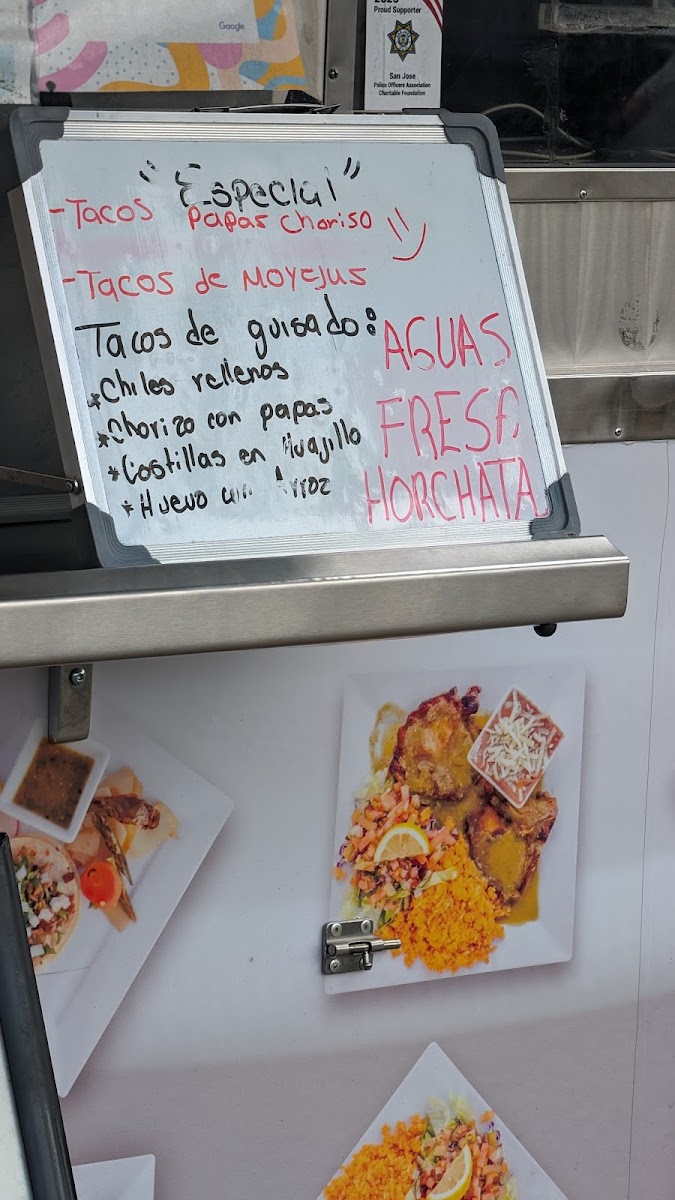 Google
2023
Proud Supporter
San Jose
Police Officers Association
Charitable Foundation
"Especial"
- Tacos Papas choriso
- Tacos de Moyejus
Tacos de guisado:
* Chiles rellenos
* Chorizo con papas
* Costillas en Huajillo
* Huevo con Arroz
AGUAS
FRESA
HORCHATA